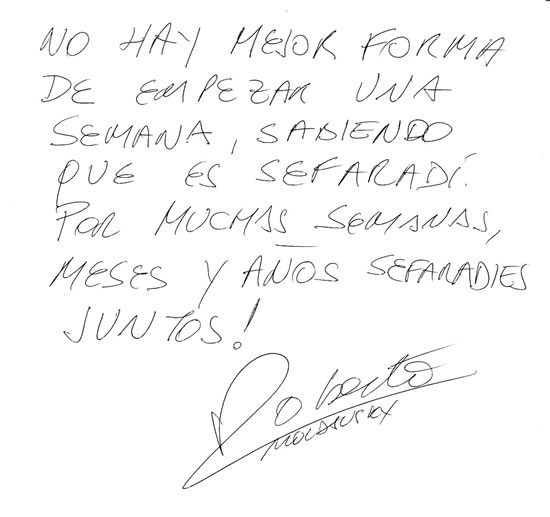 NO HAY MEJOR FORMA
DE EMPEZAR UNA
SEMANA, SABIENDO
QUE ES SEFARADÍ.
POR MUCHAS SEMANAS,
MESES Y AÑOS SEFARADIES
JUNTOS!
Roberto
MOLDAVSKY